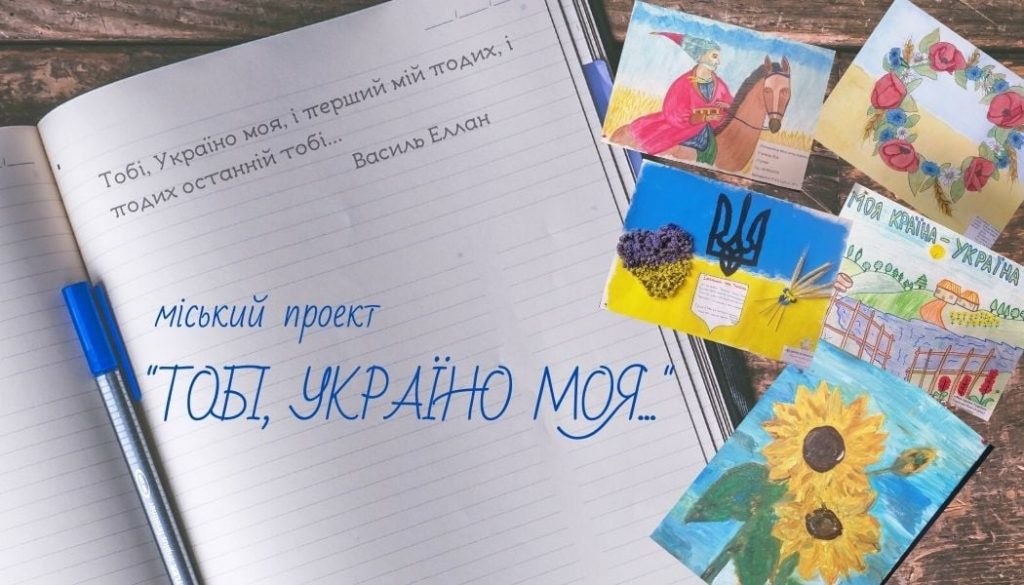 Тобі, Україно моя, і перший мій подих, і
подих останній тобі...
Василь Еллан
міський проект
"ТОБІ, УКРАЇНО МОЯ..."
МОЯ КРАЇНА - УКРАЇНА